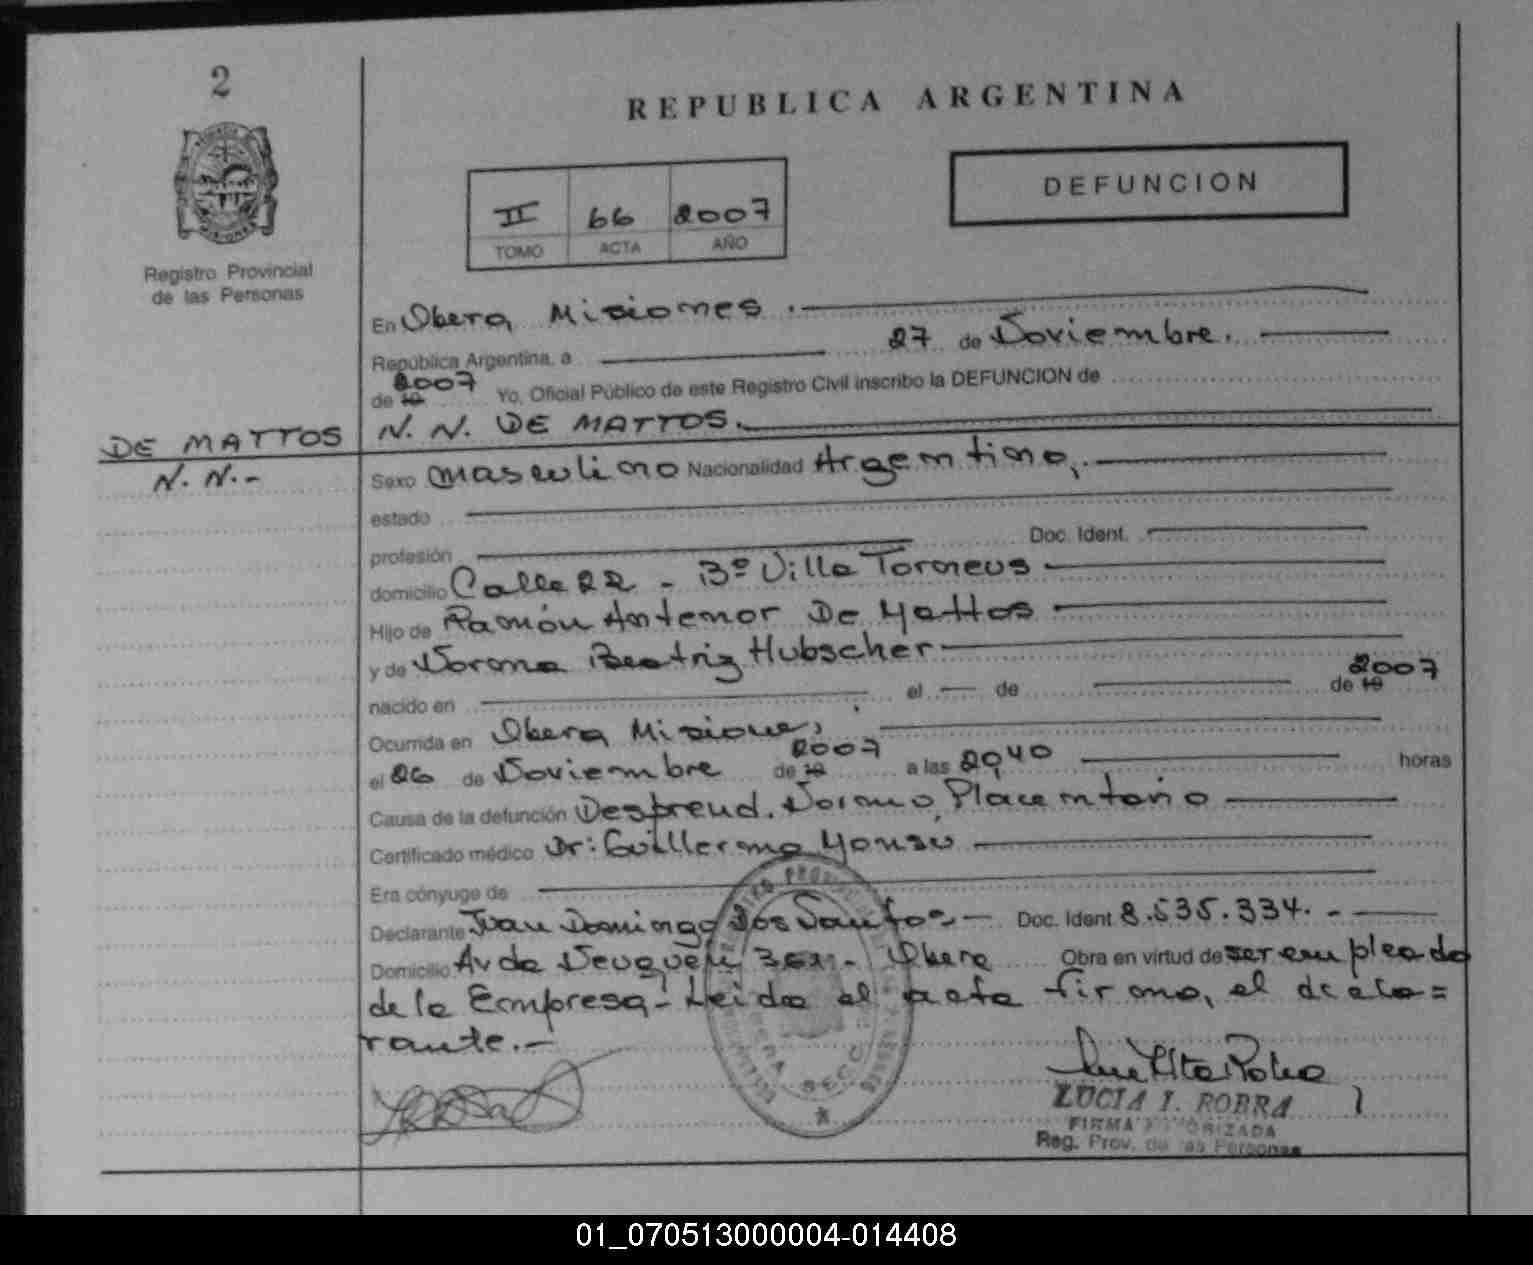 2
REPUBLICA ARGENTINA
DEFUNCION
II 66 2007
TOMO ACTA AÑO
Registro Provincial
de las Personas
En Obera Misiones.
República Argentina, a 27 de Noviembre.
de 19 2007 Yo, Oficial Público de este Registro Civil inscribo la DEFUNCION de
DE MATTOS N. N. DE MATTOS.
N. N.-
Sexo masculino Nacionalidad Argentino,.
estado
profesión Doc. Ident.
domicilio Calle 22 - Bº Villa Torneus
Hijo de Ramón Antenor De Mattos
y de Norma Beatriz Hubscher
nacido en el de de 19 2007
Ocurrida en Obera Misiones,
el 26 de Noviembre de 19 2007 a las 20,40 horas
Causa de la defunción Desprend. Normo, Placentario
Certificado médico Dr: Guillermo
Era cónyuge de
Declarante Juan Domingo Dos Santos - Doc. Ident. 8.535.334. -
Domicilio Avda Neuquén - Obera Obra en virtud de ser empleado
de la Empresa - Leida el acta firma, el decla=
rante.-
LUCIA I. ROBRA
FIRMA AUTORIZADA
Reg. Prov. de las Personas
01_070513000004-014408